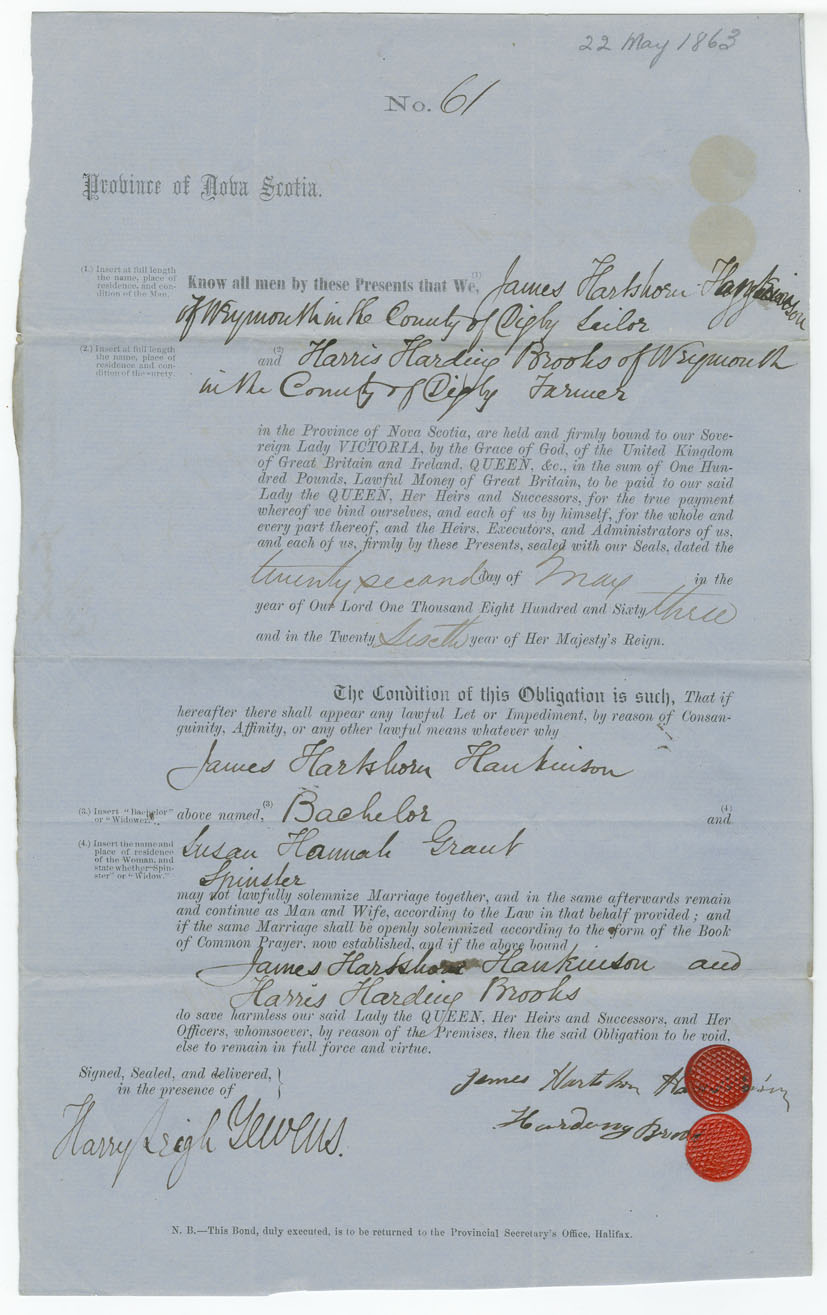 22 May 1863
No. 61
Province of Nova Scotia.
(1.) Insert at full length
the name, place of
residence, and con-
dition of the Man.
Know all men by these Presents that We, (1) James Hartshorn Hankinson
of Weymouth in the County of Digby Sailor
(2.) Insert at full length
the name, place of
residence and con-
dition of the surety.
and (2) Harris Harding Brooks of Weymouth
in the County of Digby Farmer
in the Province of Nova Scotia, are held and firmly bound to our Sove-
reign Lady VICTORIA, by the Grace of God, of the United Kingdom
of Great Britain and Ireland, QUEEN, &c., in the sum of One Hun-
dred Pounds, Lawful Money of Great Britain, to be paid to our said
Lady the QUEEN, Her Heirs and Successors, for the true payment
whereof we bind ourselves, and each of us by himself, for the whole and
every part thereof, and the Heirs, Executors, and Administrators of us,
and each of us, firmly by these Presents, sealed with our Seals, dated the
twenty second day of May in the
year of Our Lord One Thousand Eight Hundred and Sixty three
and in the Twenty Sixth year of Her Majesty's Reign.
The Condition of this Obligation is such, That if
hereafter there shall appear any lawful Let or Impediment, by reason of Consan-
guinity, Affinity, or any other lawful means whatever why
James Hartshorn Hankinson
(3.) Insert "Bachelor"
or "Widower."
above named, (3) Bachelor (4) and
(4.) Insert the name and
place of residence
of the Woman, and
state whether "Spin-
ster" or "Widow."
Susan Hannah Grant
Spinster
may not lawfully solemnize Marriage together, and in the same afterwards remain
and continue as Man and Wife, according to the Law in that behalf provided; and
if the same Marriage shall be openly solemnized according to the form of the Book
of Common Prayer, now established, and if the above bound
James Hartshorn Hankinson and
Harris Harding Brooks
do save harmless our said Lady the QUEEN, Her Heirs and Successors, and Her
Officers, whomsoever, by reason of the Premises, then the said Obligation to be void,
else to remain in full force and virtue.
Signed, Sealed, and delivered,
in the presence of
James Hartshon
Hardong
Harry Leigh Yewens.
N. B.—This Bond, duly executed, is to be returned to the Provincial Secretary's Office, Halifax.